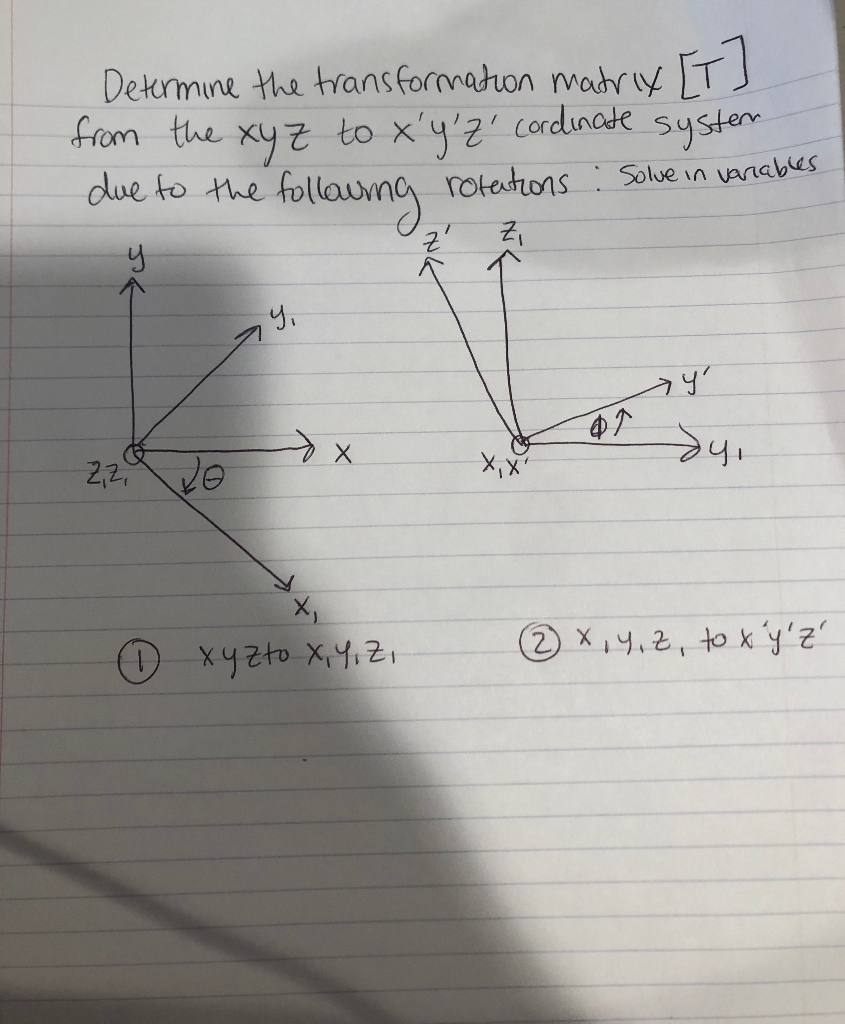 Determine the transformation matrix [T]
from the xyz to x'y'z' cordinate system
due to the following rotations : Solve in variables
y
y₁
x
z,z₁
θ
x₁
z'
z₁
y'
ϕ
y₁
x₁x'
① xyz to x₁y₁z₁
② x₁y₁z₁ to x'y'z'